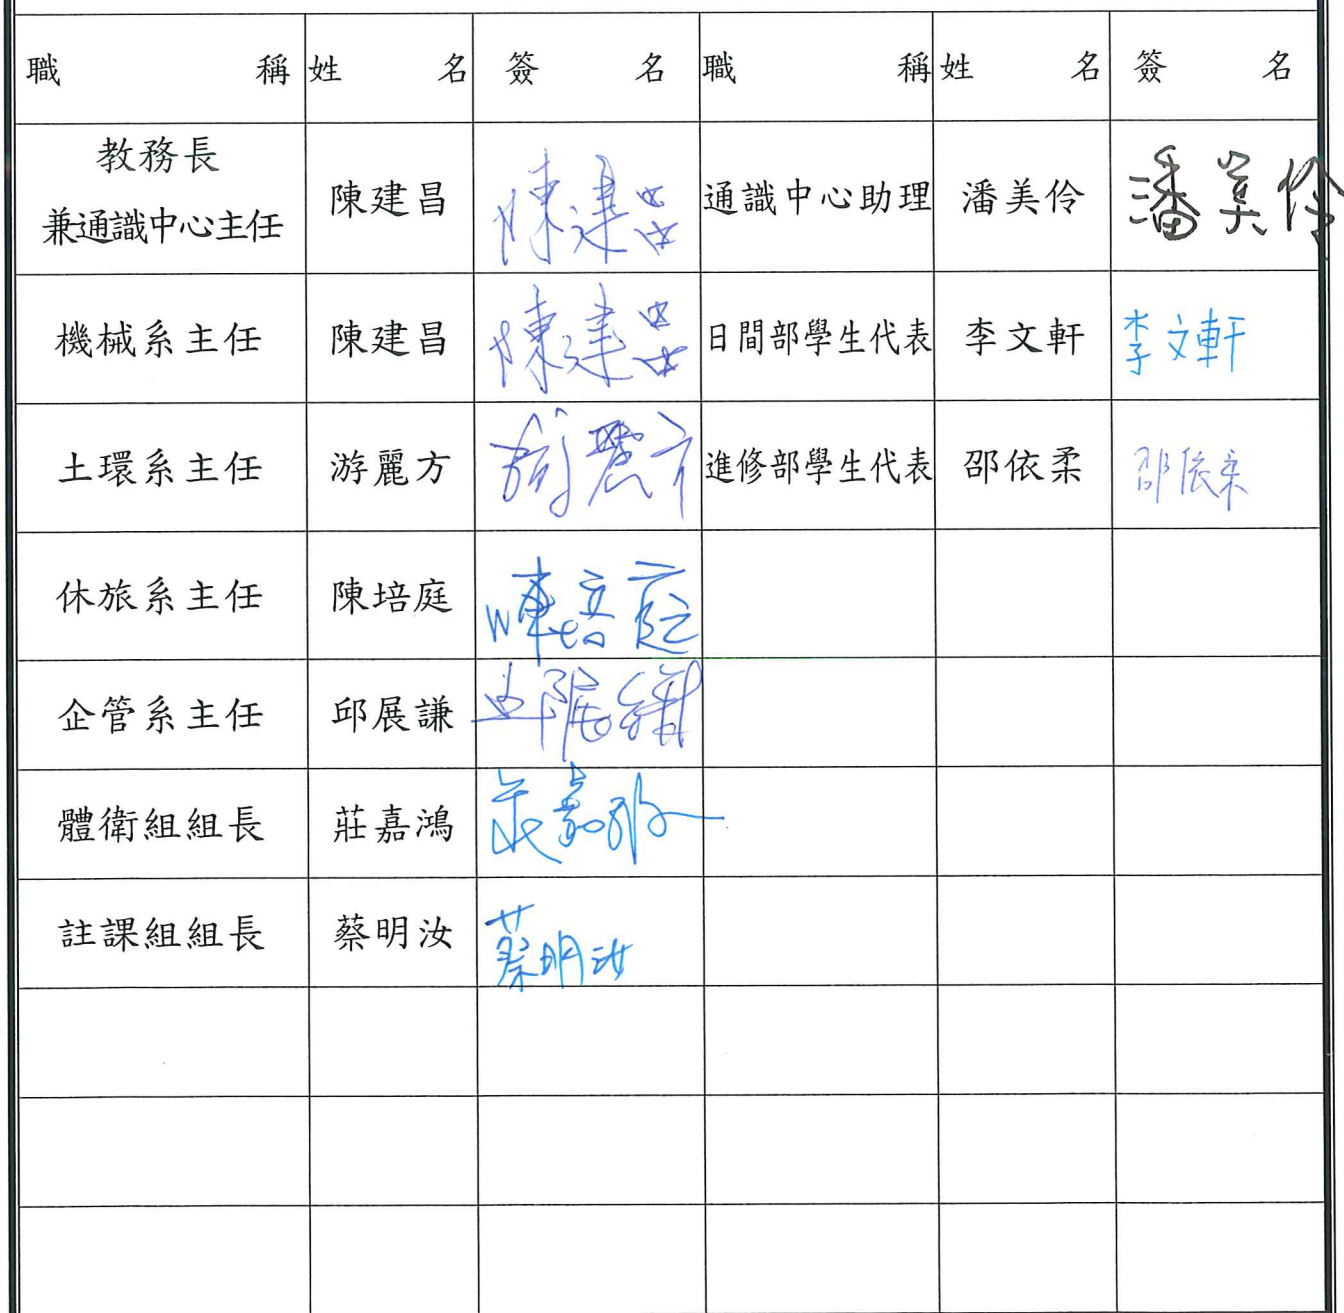 職稱 姓名 簽名 職稱 姓名 簽名
教務長
兼通識中心主任 陳建昌 陳建昌 通識中心助理 潘美伶 潘美伶
機械系主任 陳建昌 陳建昌 日間部學生代表 李文軒 李文軒
土環系主任 游麗方 游麗方 進修部學生代表 邵依柔 邵依柔
休旅系主任 陳培庭 陳培庭
企管系主任 邱展謙 邱展謙
體衛組組長 莊嘉鴻 莊嘉鴻
註課組組長 蔡明汝 蔡明汝